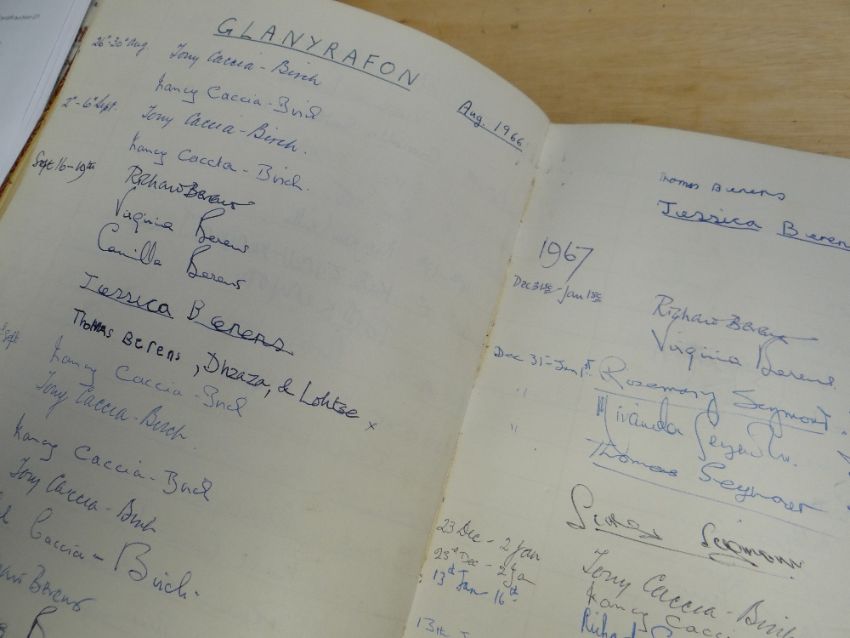 GLANYRAFON
Aug. 1966
26th-30th Aug. Tony Caccia-Birch
Nancy Caccia-Birch
2nd-6th Sept. Tony Caccia-Birch.
Nancy Caccia-Birch.
Sept 16-19th Richard Berens
Virginia Berens
Camilla Berens
Jessica Berens
Thomas Berens, Dhzaza, & Lohtse x
Sept Nancy Caccia-Birch
Tony Caccia-Birch.
Nancy Caccia-Birch
Tony Caccia-Birch
Caccia-Birch.
Berens
Thomas Berens
Jessica Berens
1967
Dec 31st-Jan 1st Richard Berens
Virginia Berens
Dec 31-Jan 1st Rosemary Seymour.
" Miranda Seymour.
" Thomas Seymour
Seymour
23 Dec - 2 Jan Tony Caccia-Birch
23rd Dec - 2 Jan Nancy Cacci
13th Jan 16th Richard
13th J